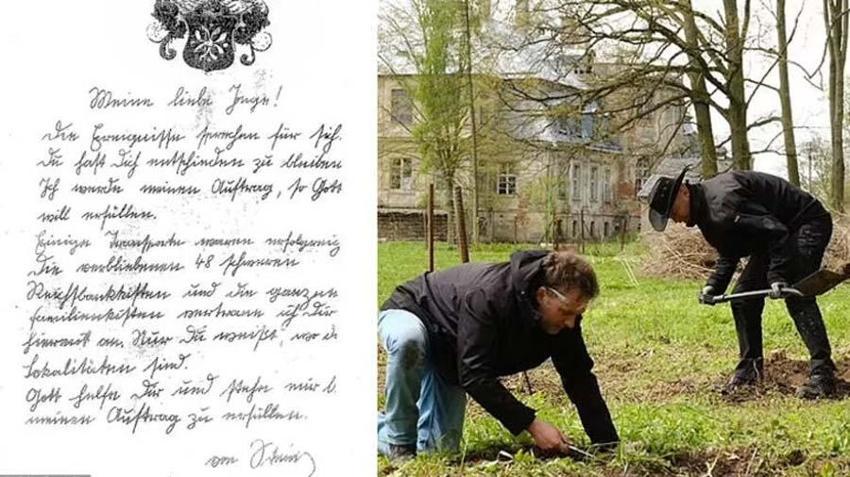 Meine liebe Inge!
Die Ereignisse sprechen für sich.
Du hast Dich entschieden zu bleiben
Ich werde meinen Auftrag, so Gott
will erfüllen.
Einige Transporte waren erfolgreich
Die verbliebenen 48 schweren
Reichsbankkisten und die ganzen
Familienkisten vertraue ich Dir
hierauf an. Nur Du weißt, wo d
Lokalitäten sind.
Gott helfe Dir und stehe mir b.
meinen Auftrag zu erfüllen.
von